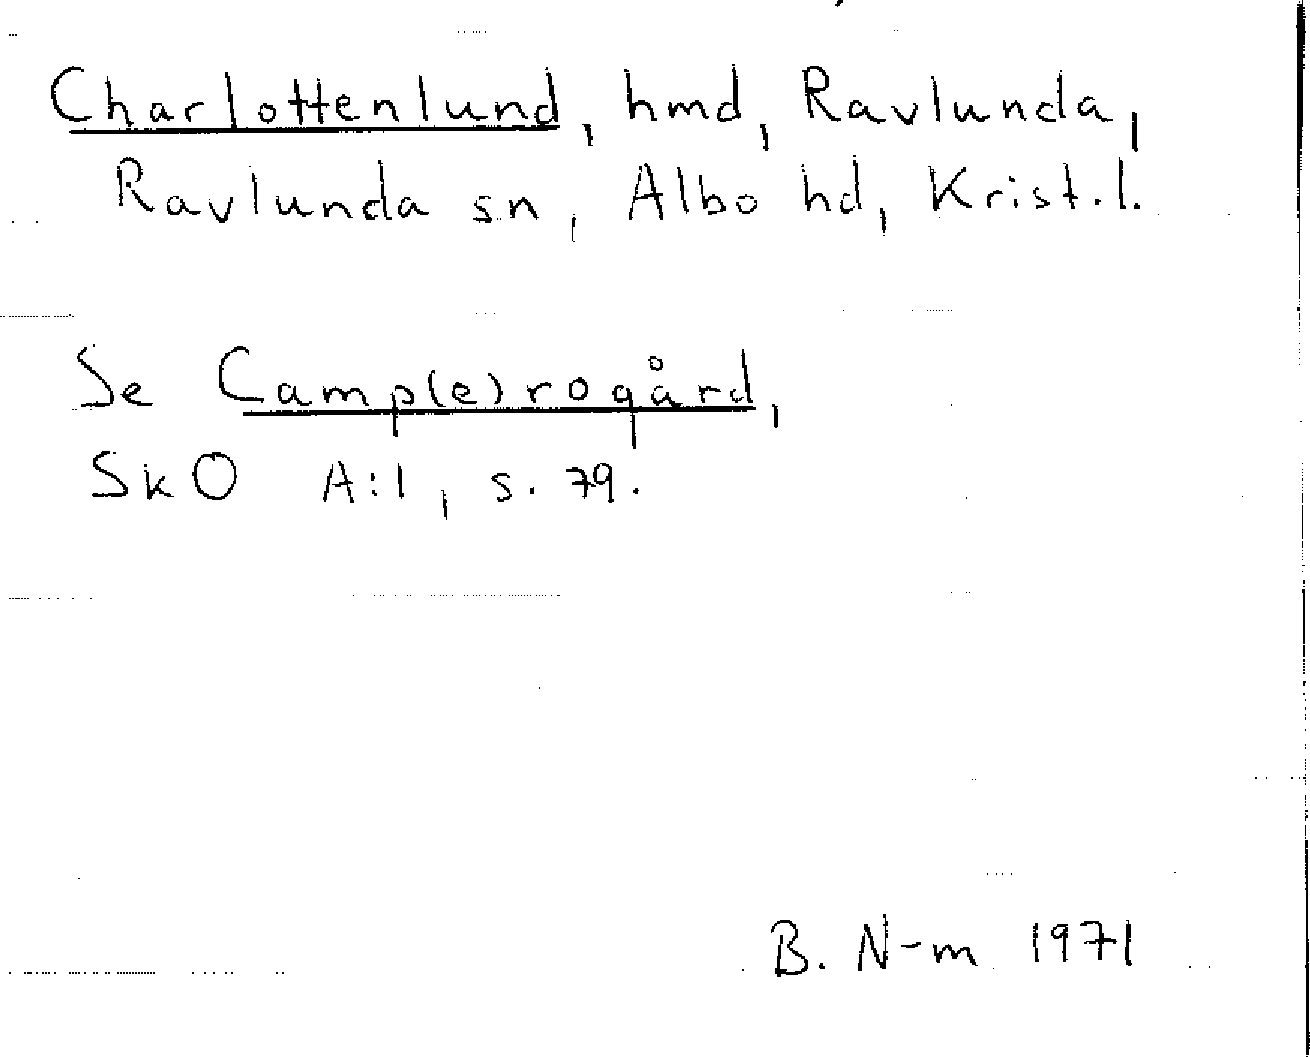 Charlottenlund, hmd, Ravlunda,
Ravlunda sn, Albo hd, Krist.l.
Se Camp(e)rogård,
SkO A:1, s. 79.
B. N-m 1971